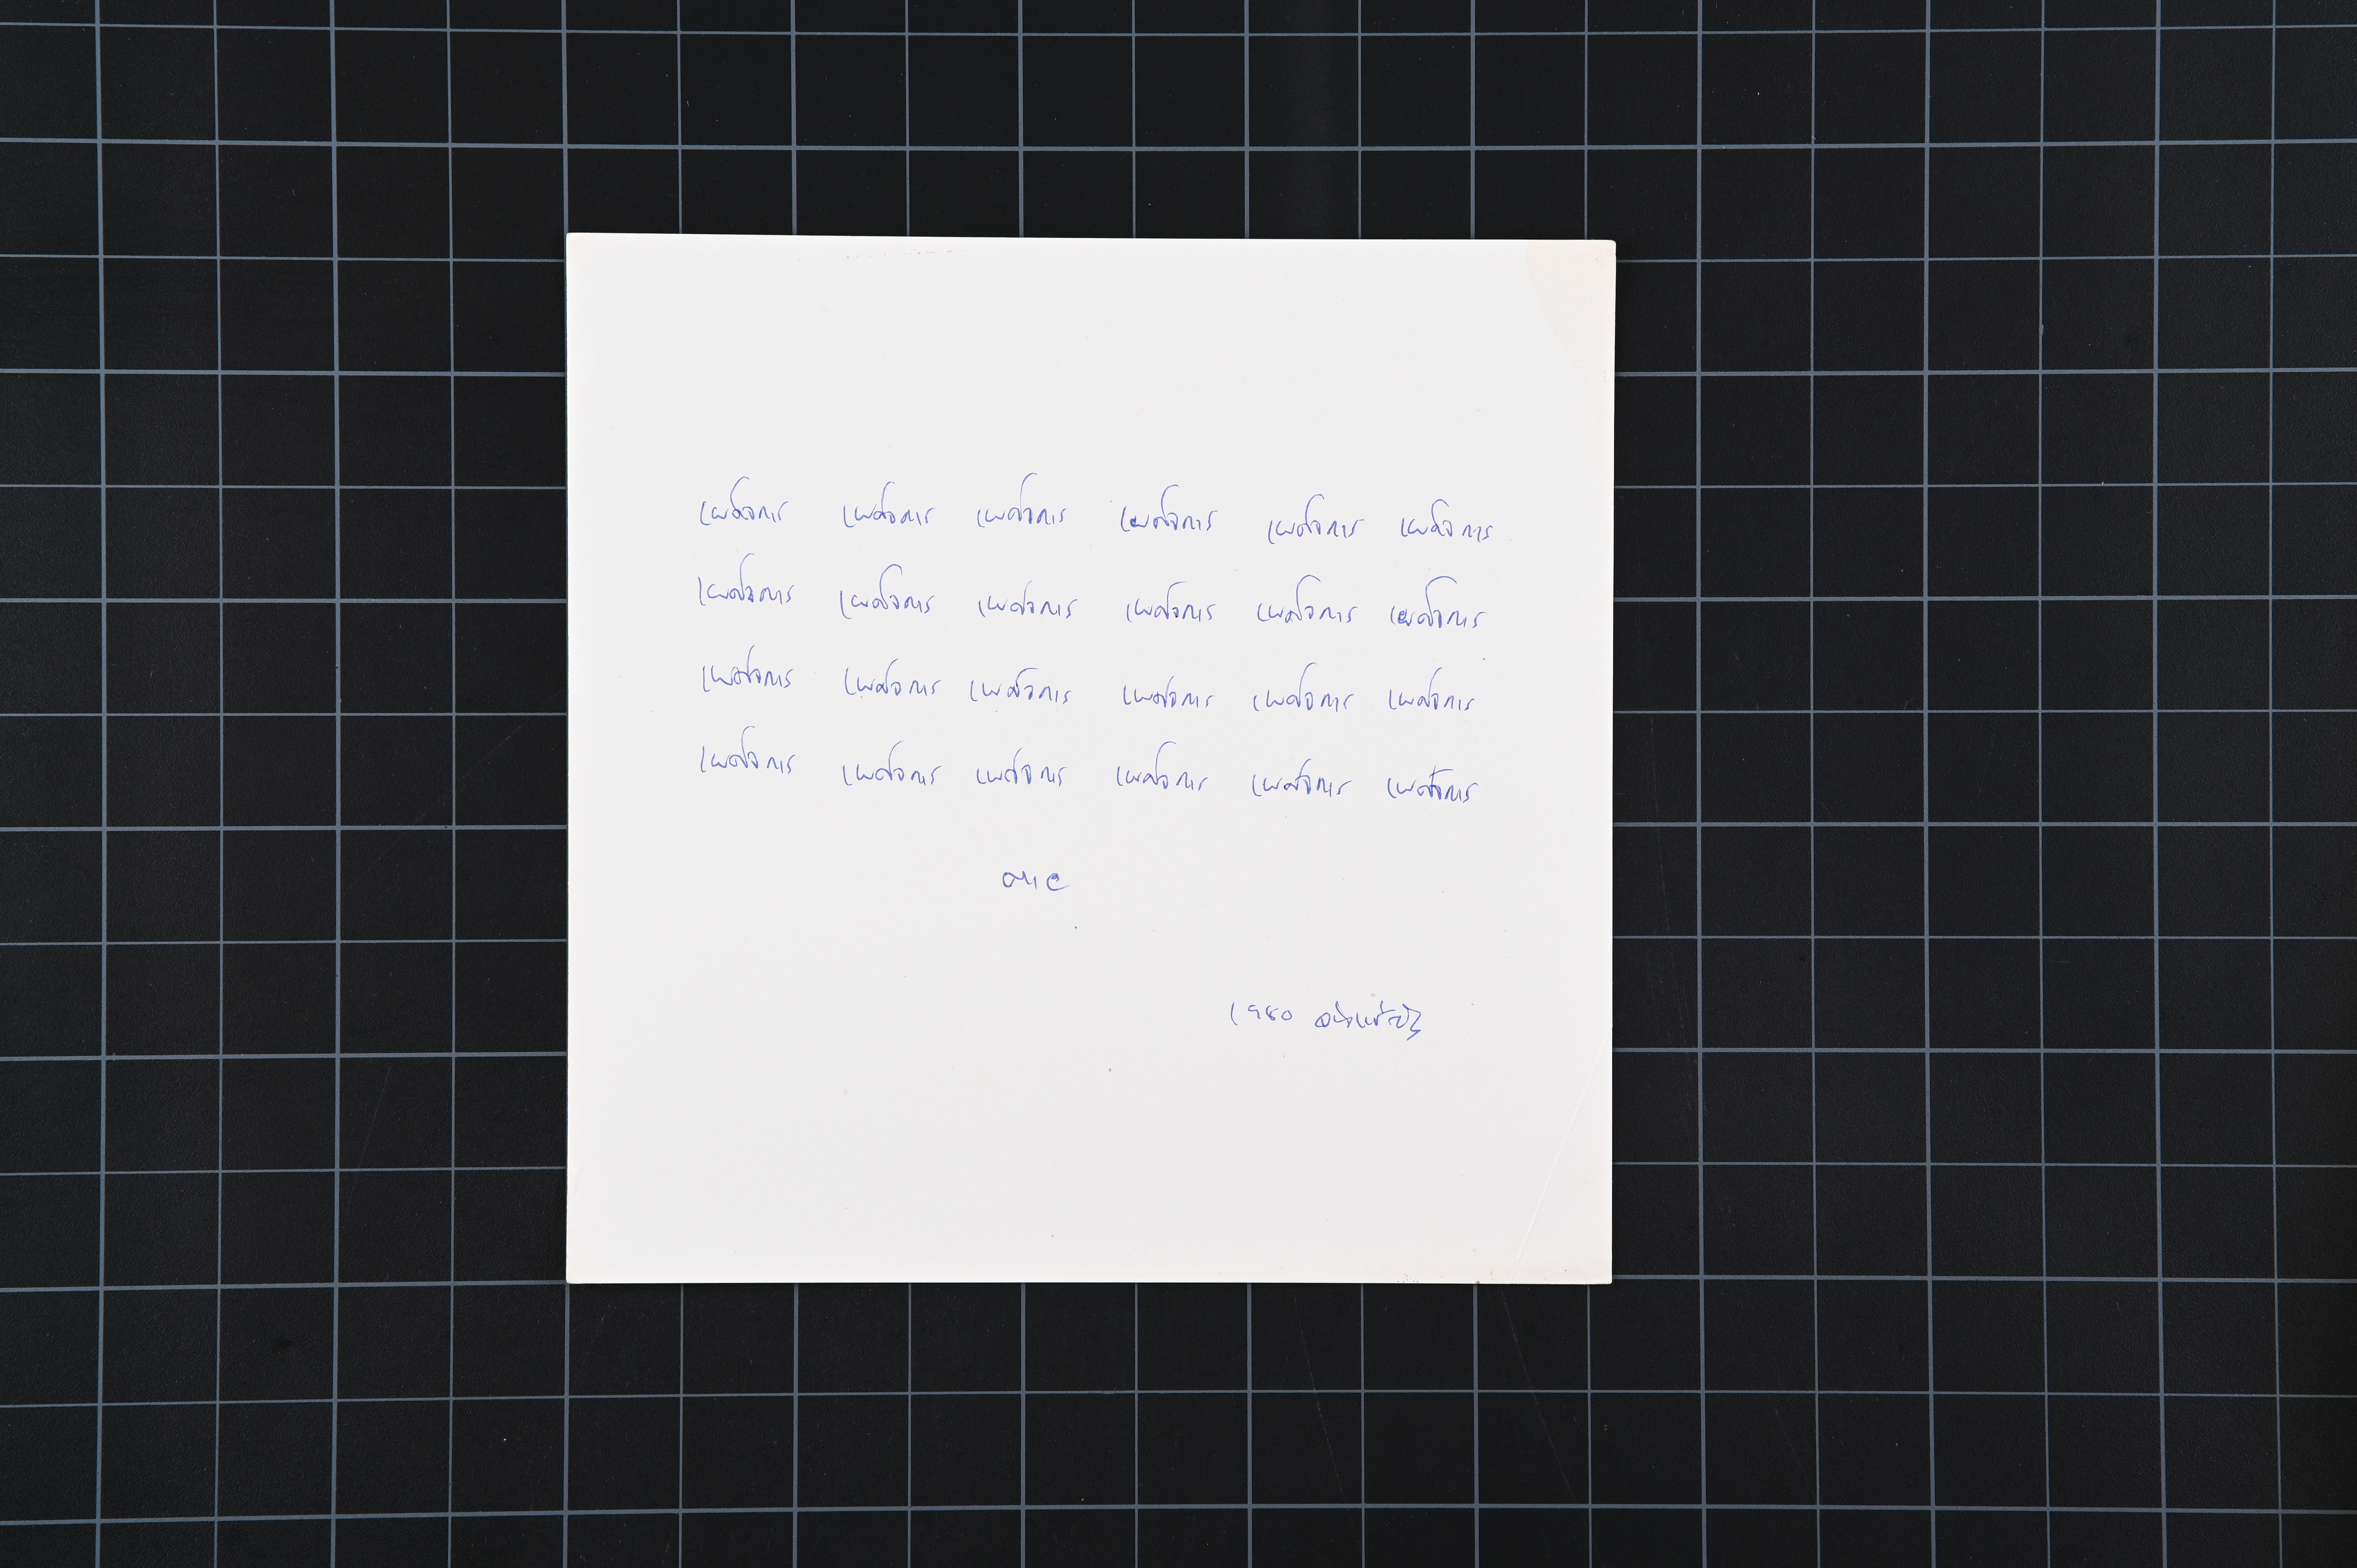 เผด็จการ เผด็จการ เผด็จการ เผด็จการ เผด็จการ เผด็จการ
เผด็จการ เผด็จการ เผด็จการ เผด็จการ เผด็จการ เผด็จการ
เผด็จการ เผด็จการ เผด็จการ เผด็จการ เผด็จการ เผด็จการ
เผด็จการ เผด็จการ เผด็จการ เผด็จการ เผด็จการ เผด็จการ
ตาย
1980 จ่างแซ่ตั้ง